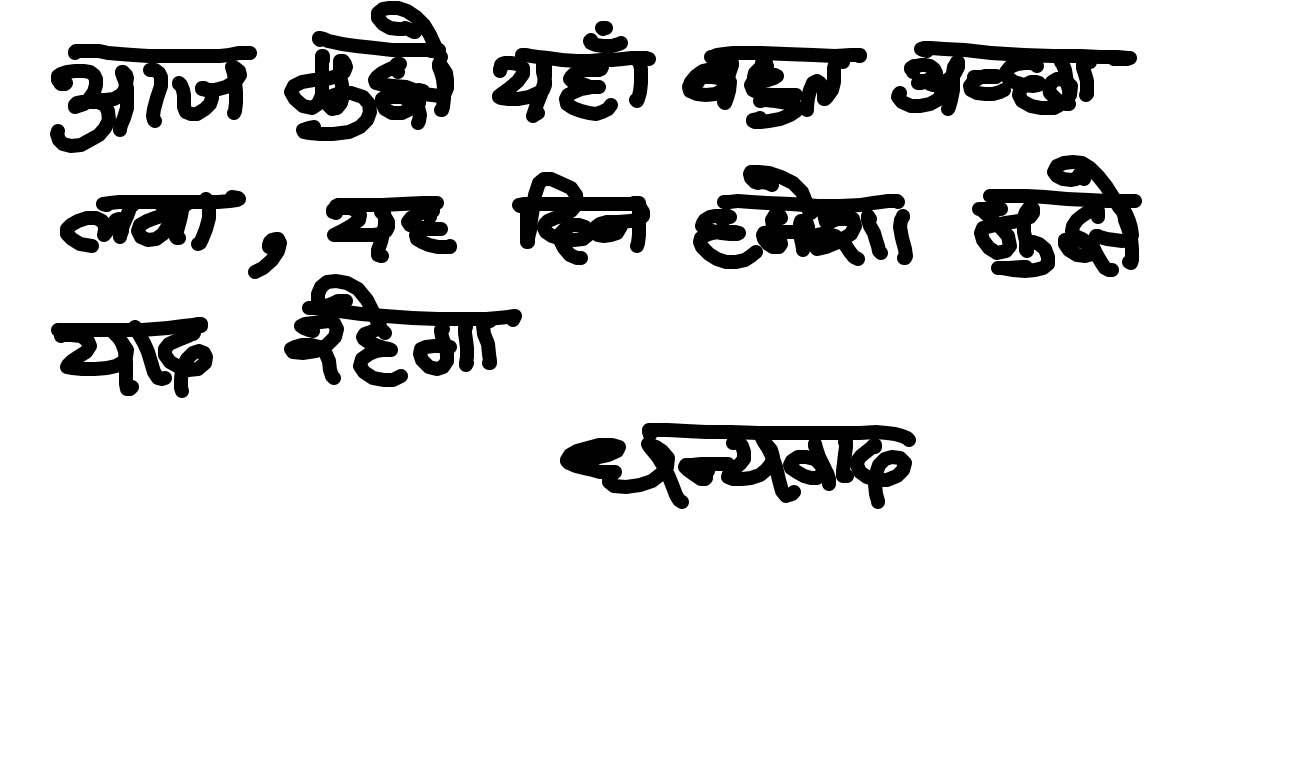 आज मुझे यहाँ बहुत अच्छा
लगा, यह दिन हमेशा मुझे
याद रहेगा
धन्यवाद